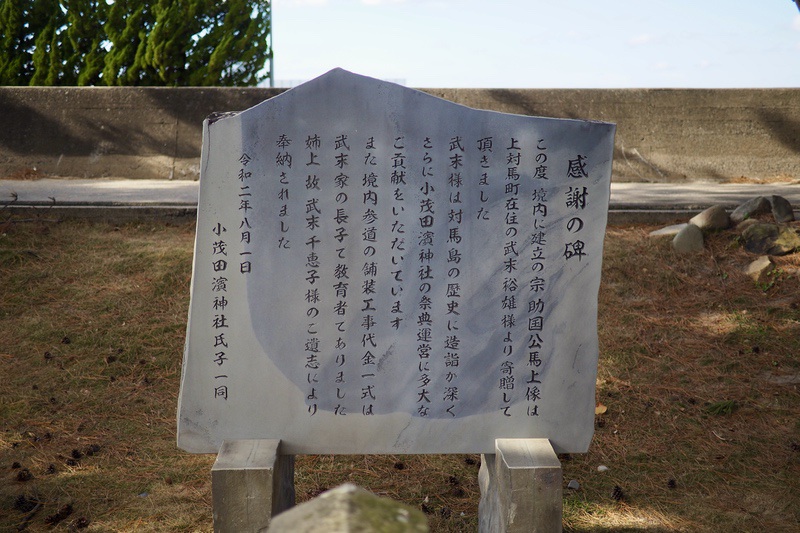 感謝の碑
この度 境内に建立の宗 助国公馬上像は
上対馬町在住の武末 裕雄様より寄贈して
頂きました
武末様は対馬島の歴史に造詣か深く
さらに小茂田濱神社の祭典運営に多大な
ご貢献をいただいています
また境内参道の舗装工事代金一式は
武末家の長子て教育者てありました
姉上 故 武末 千恵子様のご遺志により
奉納されました
令和二年八月一日
小茂田濱神社氏子一同